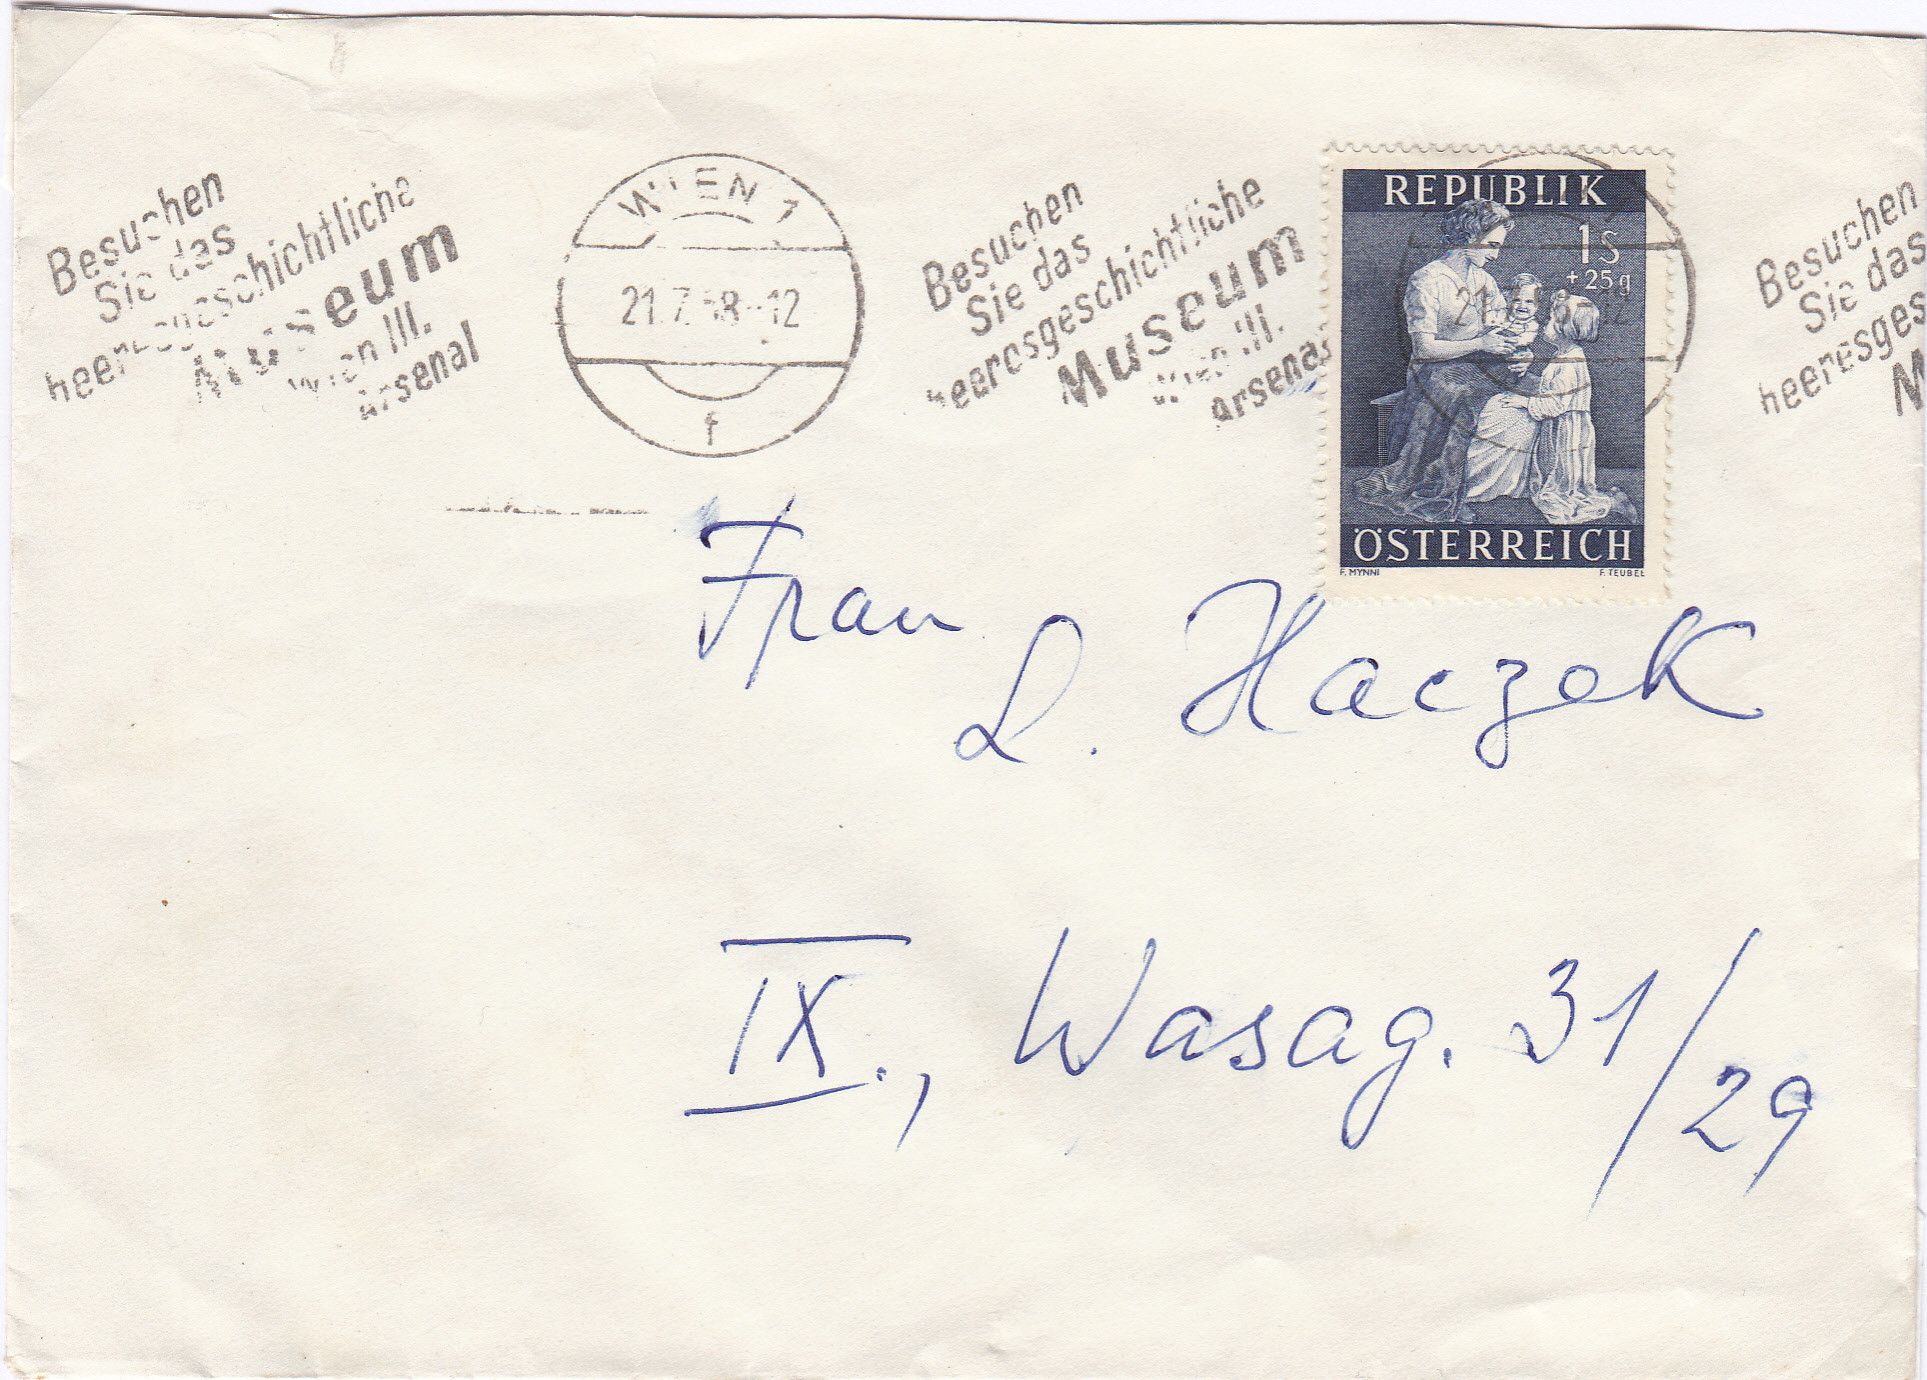 Besuchen
Sie das
heeresgeschichtliche
Museum
Wien III.
Arsenal
WIEN 1
21.7.58-12
f
Besuchen
Sie das
heeresgeschichtliche
Museum
Wien III.
Arsenal
REPUBLIK
1S
+25g
ÖSTERREICH
F. MYNNI
F. TEUBEL
Besuchen
Sie das
heeresges
M
Frau
L. Haczek
IX., Wasag. 31/29